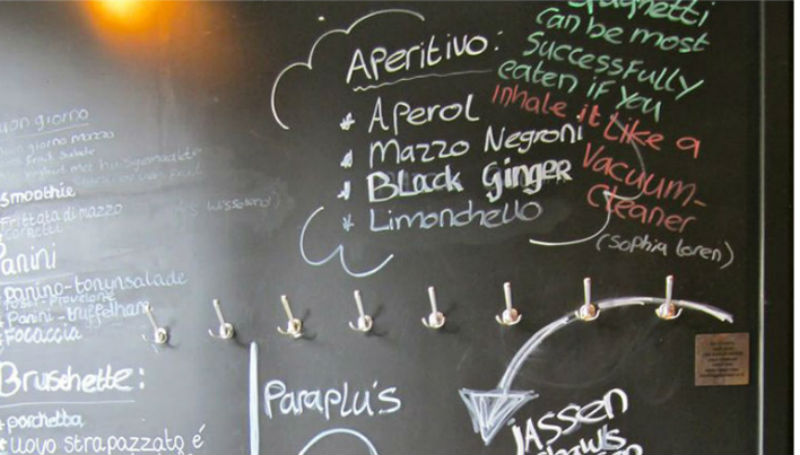 Aperitivo:
* Aperol
* Mazzo Negroni
* Black Ginger
* Limonchello
Spaghetti
can be most
Successfully
eaten if you
inhale it like a
Vacuum-
Cleaner
(Sophia Loren)
giorno
giorno mazzo
smoothie
Frittata di mazzo
Panini
panino-tonijnsalade
+ Panini - truffelham
+ Focaccia
Bruschette:
+ porchetta
+ uovo strapazzato é
Paraplu's
Jassen